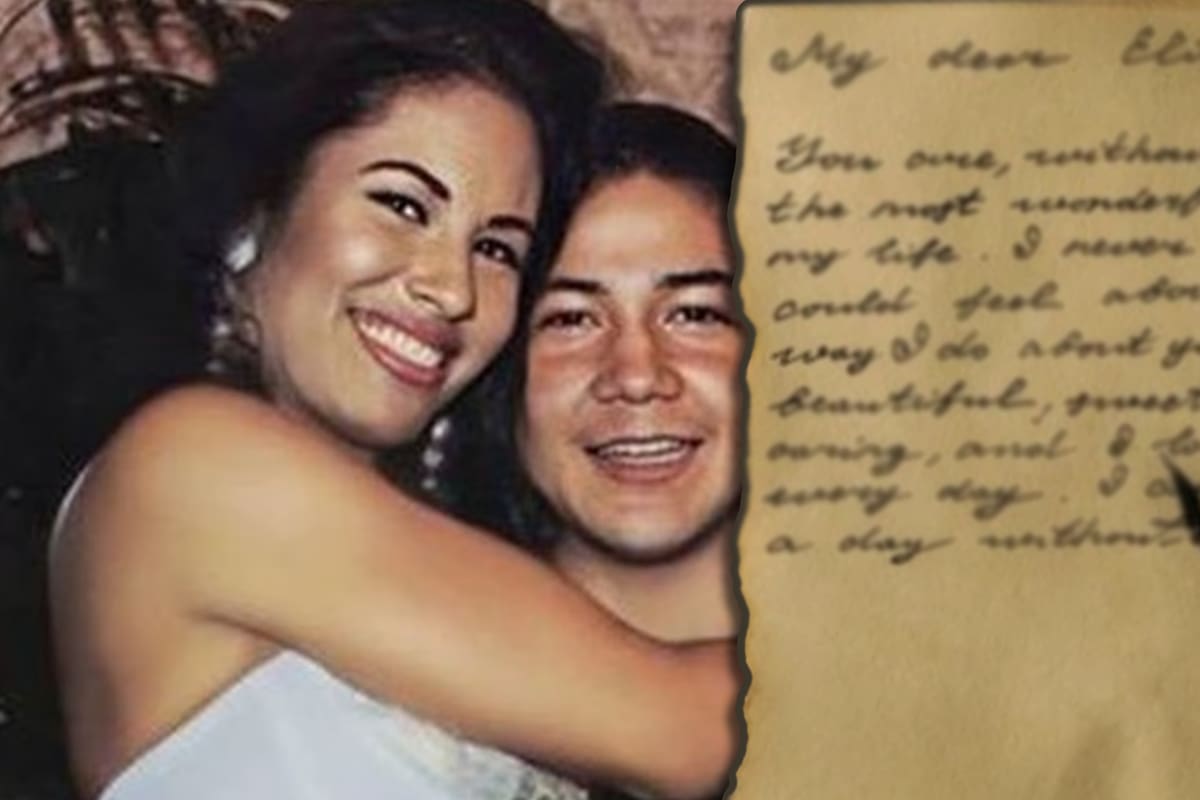 My dear Eli
You are, withou
the most wonderf
my life. I never
could feel abou
way I do about y
beautiful, sweet
caring, and I lo
every day. I ca
a day without